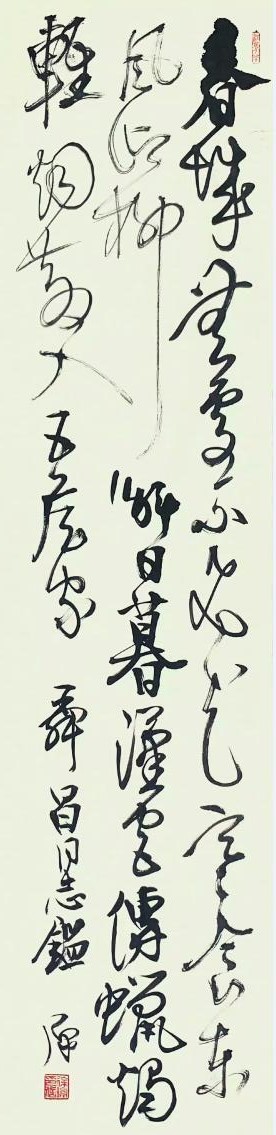 春城無處不飛花寒食東
風御柳斜日暮漢宮傳蠟燭
輕烟散入五侯家 舜昌同志鑑